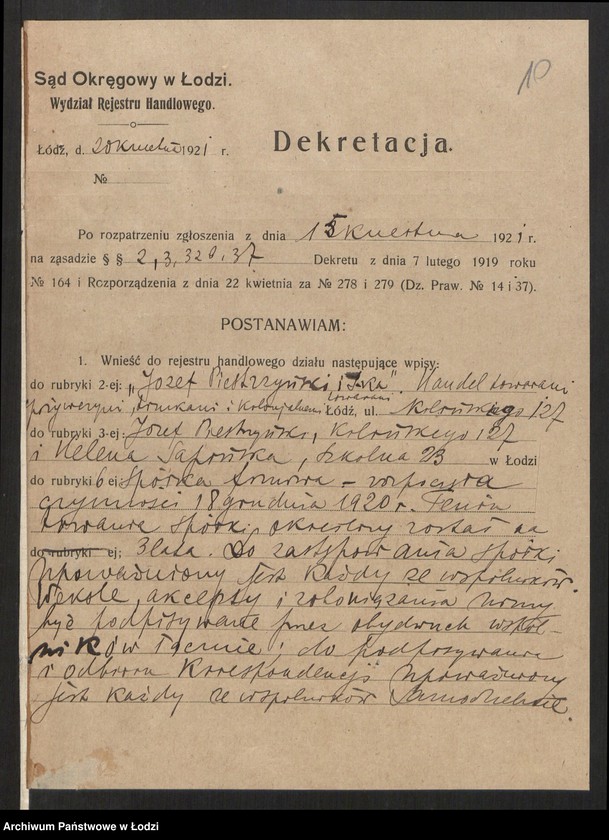 10
Sąd Okręgowy w Łodzi.
Wydział Rejestru Handlowego.
Łódź, d. 20 kwietnia 1921 r.
№
Dekretacja.
Po rozpatrzeniu zgłoszenia z dnia 15 kwietnia 1921 r.
na zasadzie § § 2, 3, 320, 37 Dekretu z dnia 7 lutego 1919 roku
№ 164 i Rozporządzenia z dnia 22 kwietnia za № 278 i 279 (Dz. Praw. № 14 i 37).
POSTANAWIAM:
1. Wnieść do rejestru handlowego działu następujące wpisy:
do rubryki 2-ej: „Józef Piestrzyński i S-ka". Handel towarami
spożywczymi, trunkami i kolonjalnemi towarami Łódź, ul. 127
do rubryki 3-ej: Józef Piestrzyński, 127
i Helena, Szkolna 23 w Łodzi
do rubryki 6 ej: Spółka firmowa – rozpoczęła
czynności 18 grudnia 1920 r. Termin
trwania spółki określony został na
do rubryki ej: 3 lata. Do zastępowania spółki
upoważniony jest każdy ze wspólników.
Weksle, akcepty i zobowiązania winny
być podpisywane przez obydwuch wspól-
ników łącznie; do podpisywania
i odbioru korespondencji upoważniony
jest każdy ze wspólników samodzielnie.
Archiwum Państwowe w Łodzi